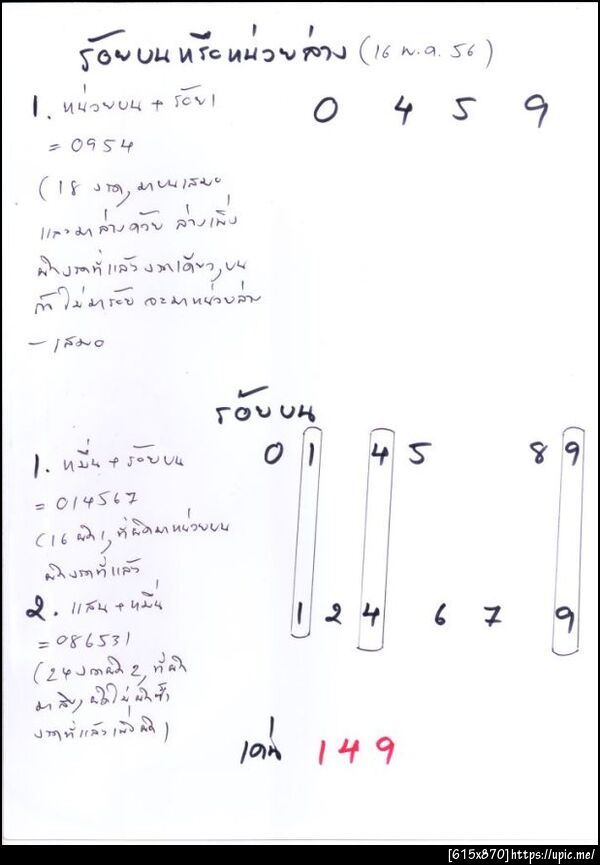 ร้อยบนหรือหน่วยล่าง (16 พ.ค. 56)
1. หน่วยบน + ร้อย 1
= 0954
0 4 5 9
(18 งวด, มาบนเสมอ
และมาล่างด้วย ล่างเพิ่ง
ผิดงวดที่แล้วงวดเดียว, บน
ถ้าไม่มาร้อย จะมาหน่วยล่าง
- เสมอ
ร้อยบน
1. หมื่น + ร้อยบน
= 014567
0 1 4 5 8 9
(16 ผิด 1, ที่ผิดมาหน่วยบน
ผิดงวดที่แล้ว
2. แสน + หมื่น
= 086531
1 2 4 6 7 9
(24 งวดผิด 2, ที่ผิด
มาสิบ, ผิดไม่ผิดซ้ำ
งวดที่แล้วเพิ่งผิด)
เด่น 149
[615x870]https://upic.me/